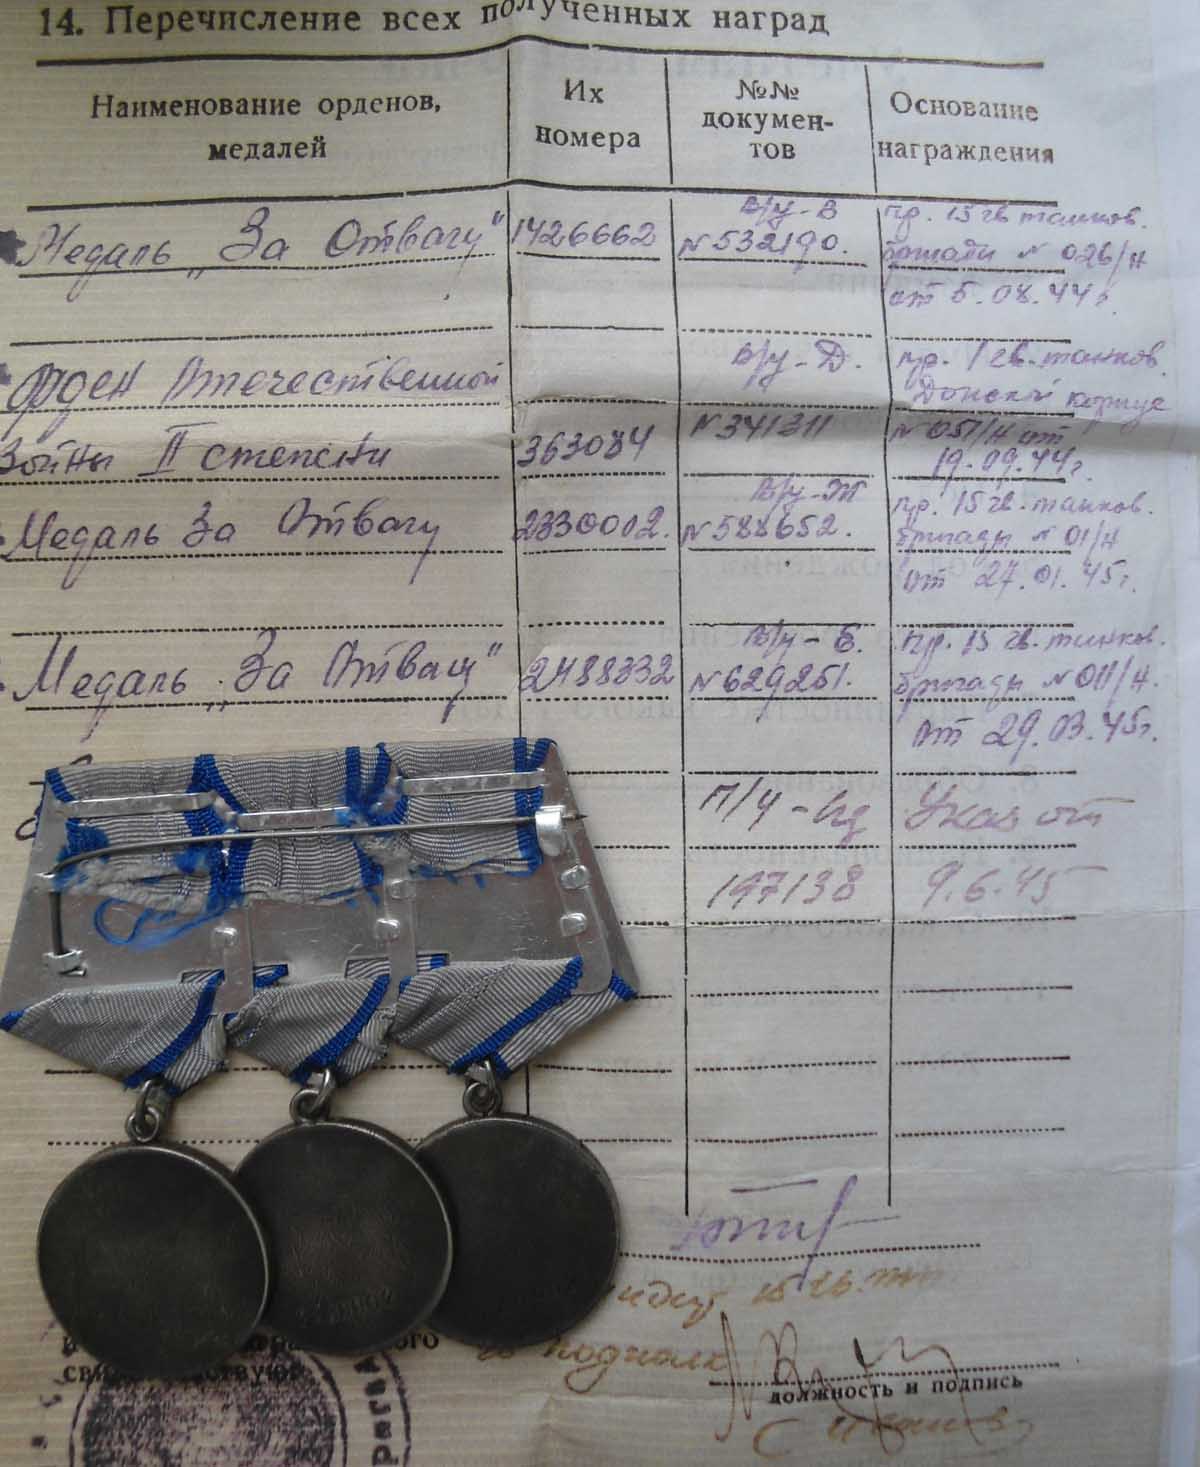 14. Перечисление всех полученных наград
Наименование орденов, медалей
Их номера
№№ докумен-тов
Основание награждения
Медаль „За Отвагу" 1426662 В/у-В № 532190. пр. 15 гв. танков. бригады № 026/н
от 5.08.44 г.
Орден Отечественной В/у-Д. пр. 1 гв. танков. Донской корпус
Войны II степени 363084 № 341311 № 051/н от 19.09.44 г.
Медаль За Отвагу 2330002. В/у-Ж № 588652. пр. 15 гв. танков. бригады № 01/н
от 27.01.45 г.
Медаль „За Отвагу" 2488332 В/у-Е. № 629251. пр. 15 гв. танков. бригады № 011/н.
от 29.03.45 г.
П/У-Нд Указ от
197138 9.6.45
15 гв.
подполк
должность и подпись